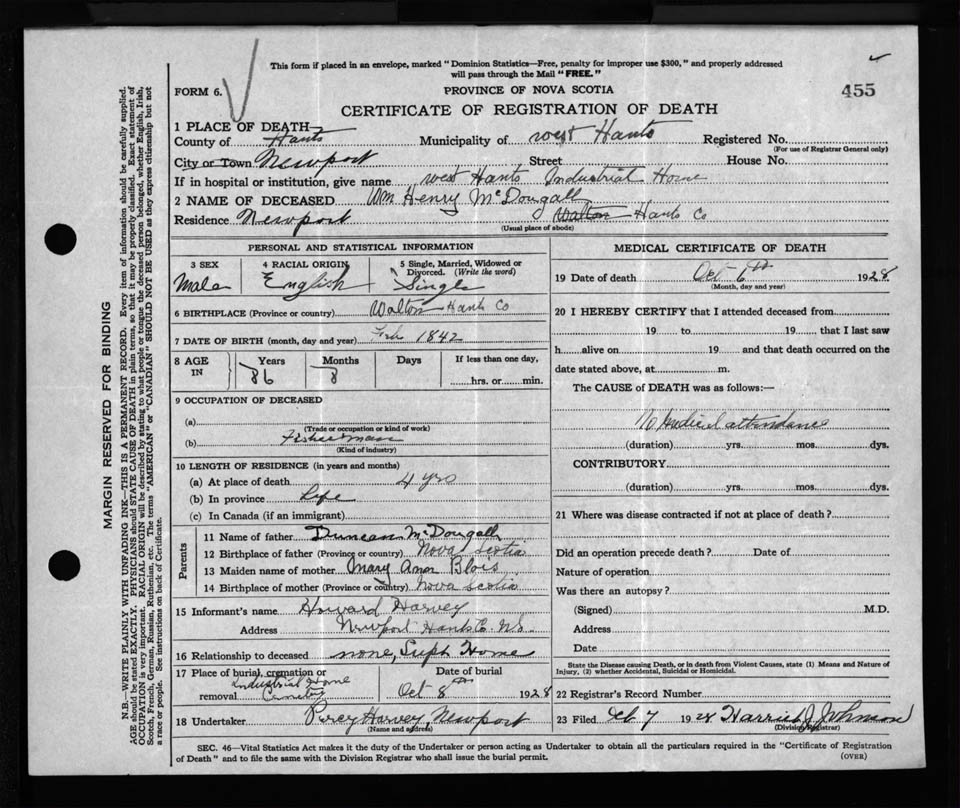 This form if placed in an envelope, marked "Dominion Statistics—Free, penalty for improper use $300," and properly addressed
will pass through the Mail "FREE."
FORM 6.
PROVINCE OF NOVA SCOTIA
455
CERTIFICATE OF REGISTRATION OF DEATH
1 PLACE OF DEATH
County of Hants Municipality of West Hants Registered No.
(For use of Registrar General only)
City or Town Newport Street House No.
If in hospital or institution, give name West Hants Industrial Home
2 NAME OF DECEASED Wm Henry McDougall
Residence Newport Walton Hants Co
(Usual place of abode)
PERSONAL AND STATISTICAL INFORMATION
3 SEX 4 RACIAL ORIGIN 5 Single, Married, Widowed or Divorced. (Write the word)
Male English Single
6 BIRTHPLACE (Province or country) Walton Hants Co
7 DATE OF BIRTH (month, day and year) Feb 1842
8 AGE IN Years Months Days If less than one day,
86 8 hrs. or min.
9 OCCUPATION OF DECEASED
(a)
(Trade or occupation or kind of work)
(b) Fisherman
(Kind of industry)
10 LENGTH OF RESIDENCE (in years and months)
(a) At place of death 4 yrs
(b) In province Life
(c) In Canada (if an immigrant)
Parents
11 Name of father Duncan McDougall
12 Birthplace of father (Province or country) Nova Scotia
13 Maiden name of mother Mary Ann Blois
14 Birthplace of mother (Province or country) Nova Scotia
15 Informant's name Howard Harvey
Address Newport Hants Co. N.S.
16 Relationship to deceased none, Supt Home
17 Place of burial, cremation or removal Industrial Home Cemetry
Date of burial Oct 8th 1928
18 Undertaker Percy Harvey, Newport
(Name and address)
MEDICAL CERTIFICATE OF DEATH
19 Date of death Oct 6th 1928
(Month, day and year)
20 I HEREBY CERTIFY that I attended deceased from
19 to 19 that I last saw
h alive on 19 and that death occurred on the
date stated above, at m.
The CAUSE of DEATH was as follows:—
No Medical attendance
(duration) yrs. mos. dys.
CONTRIBUTORY
(duration) yrs. mos. dys.
21 Where was disease contracted if not at place of death?
Did an operation precede death? Date of
Nature of operation
Was there an autopsy?
(Signed) M.D.
Address
Date
State the Disease causing Death, or in death from Violent Causes, state (1) Means and Nature of
Injury, (2) whether Accidental, Suicidal or Homicidal.
22 Registrar's Record Number
23 Filed Oct 7 1928 Harriet J Johnson
(Division Registrar)
SEC. 46—Vital Statistics Act makes it the duty of the Undertaker or person acting as Undertaker to obtain all the particulars required in the "Certificate of Registration
of Death" and to file the same with the Division Registrar who shall issue the burial permit.
(OVER)
MARGIN RESERVED FOR BINDING
N.B.—WRITE PLAINLY WITH UNFADING INK—THIS IS A PERMANENT RECORD. Every item of information should be carefully supplied.
AGE should be stated EXACTLY. PHYSICIANS should STATE CAUSE OF DEATH in plain terms, so that it may be properly classified. Exact statement of
OCCUPATION is very important. RACIAL ORIGIN will be described by stating to what people or tongue the deceased person belonged, whether English, Irish,
Scotch, French, German, Russian, Ruthenian, etc. The terms "AMERICAN" or "CANADIAN" SHOULD NOT BE USED as they express citizenship but not
a race or people. See instructions on back of Certificate.